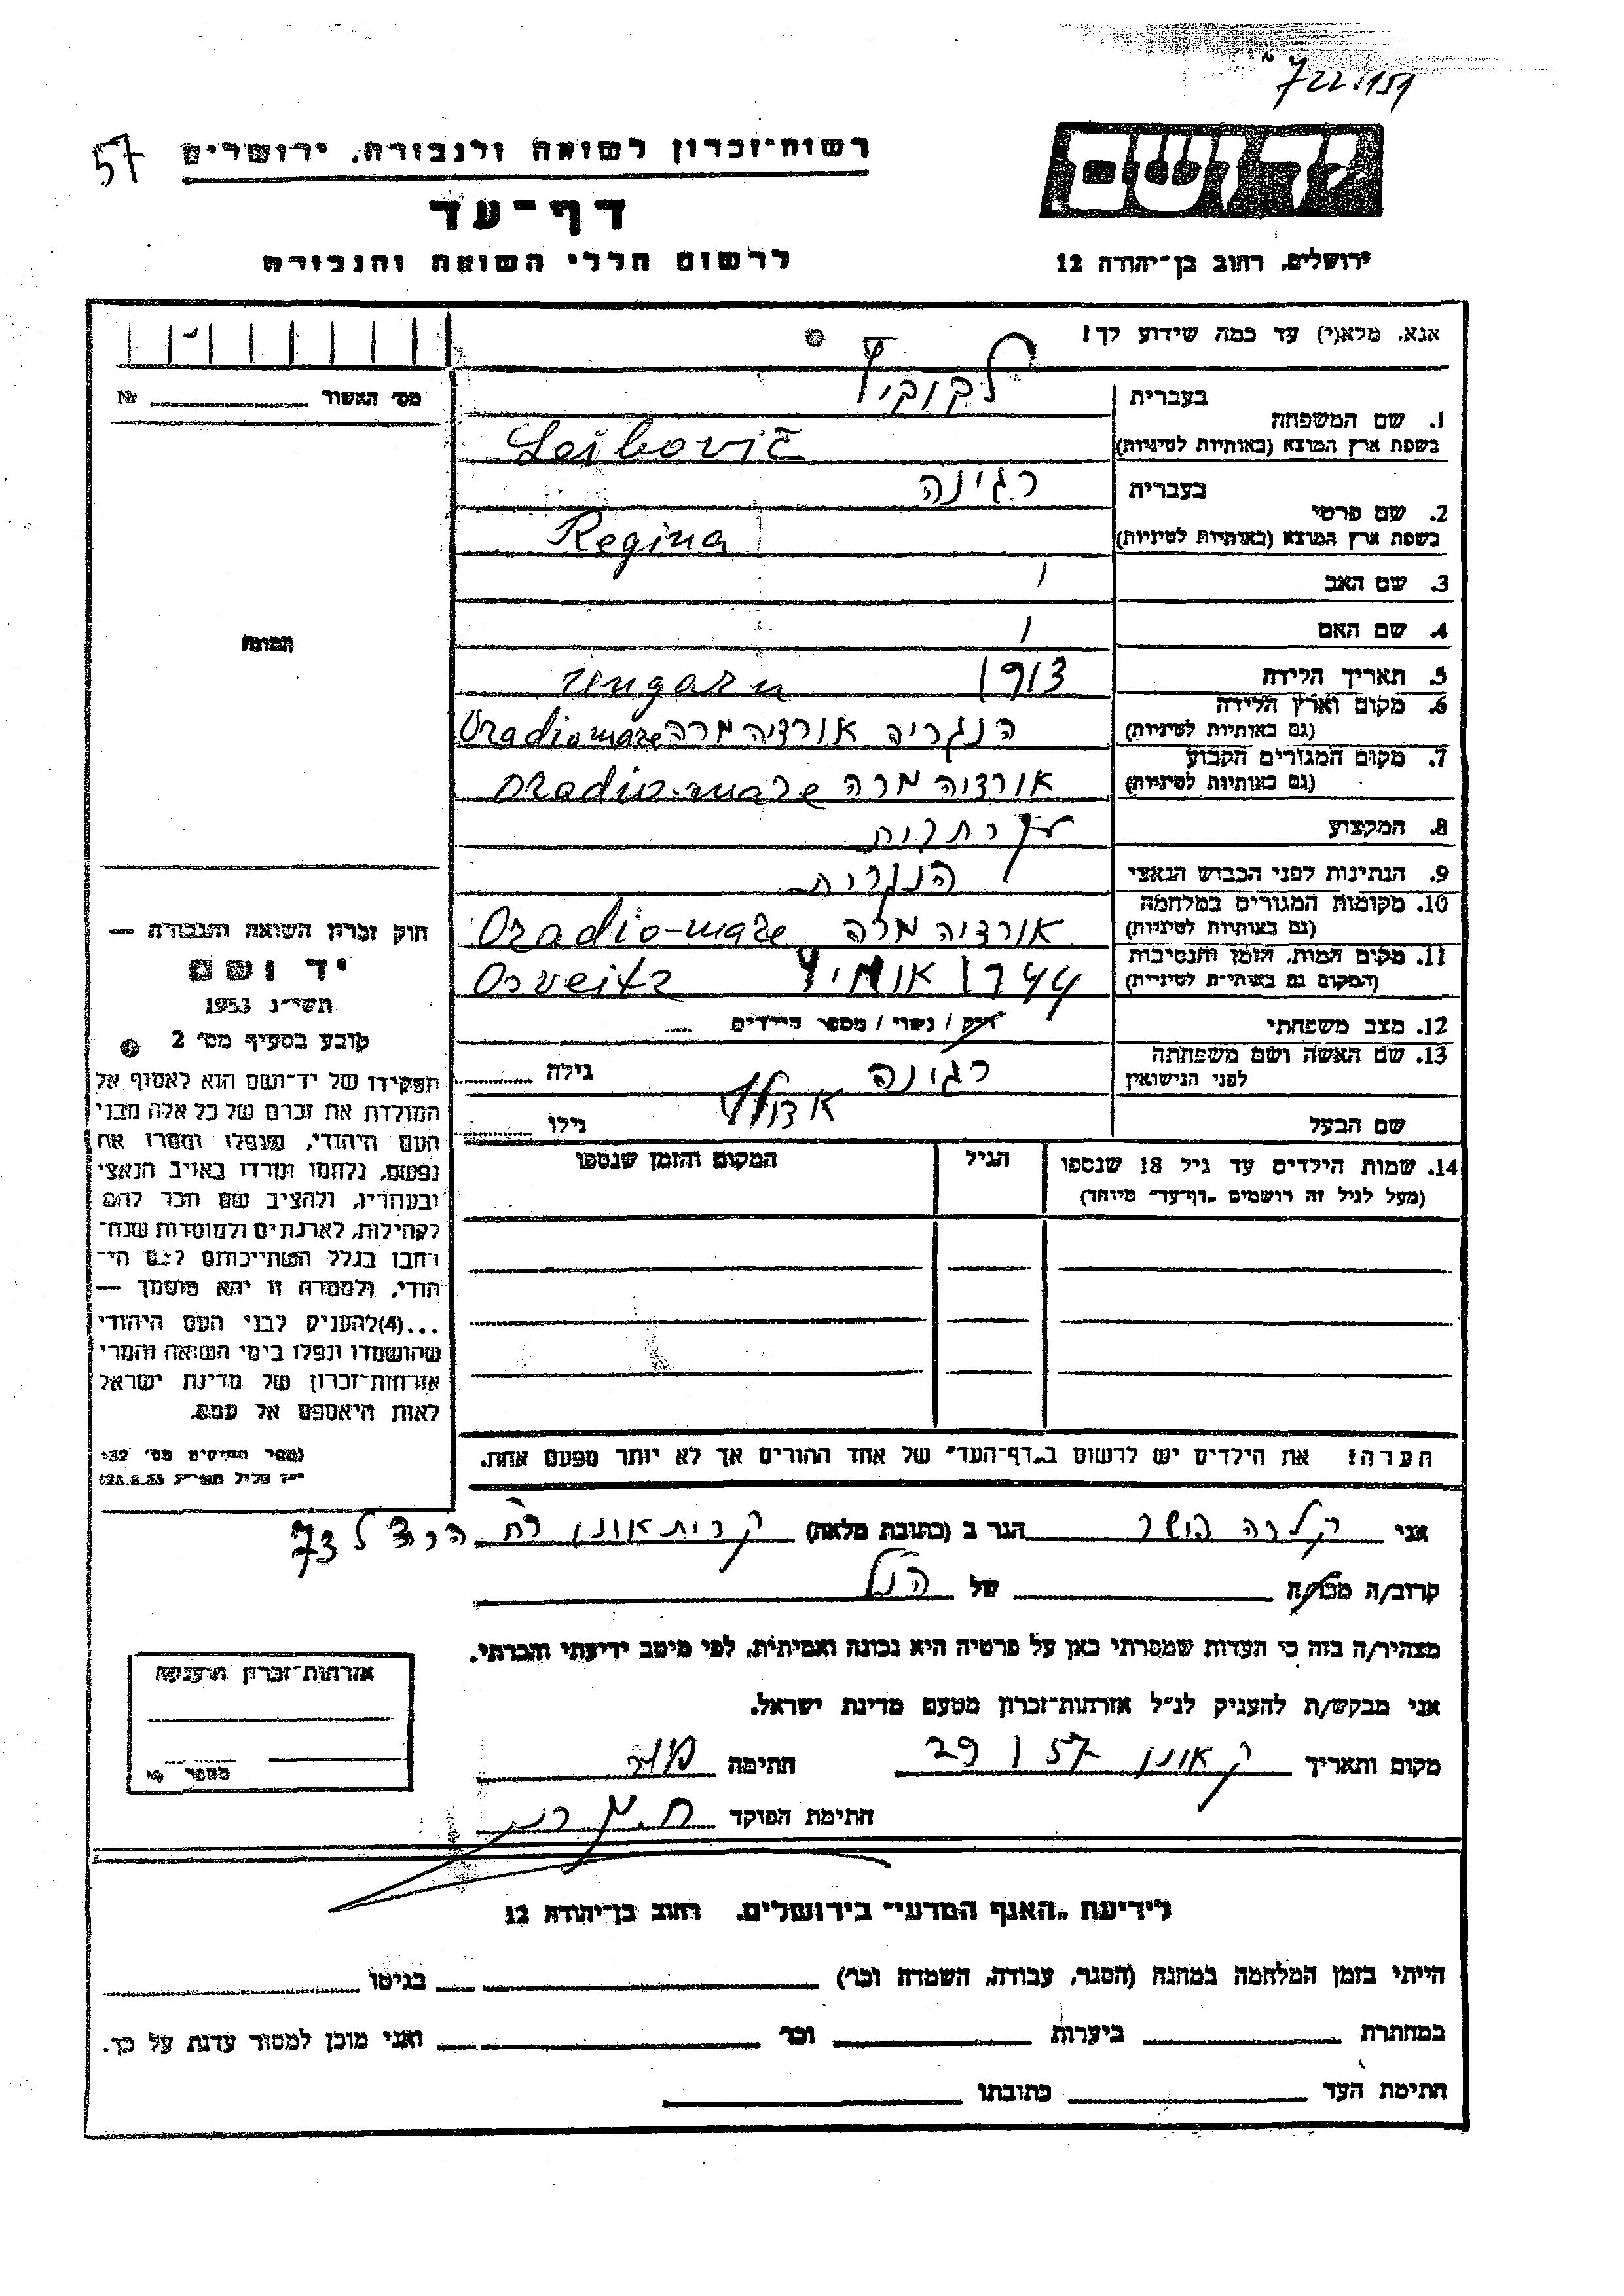 57
רשות־זכרון לשואה ולגבורה, ירושלים
דף־עד
לרשום חללי השואה והגבורה
ירושלים, רחוב בן־יהודה 12
אנא, מלא(י) עד כמה שידוע לך!
מס׳ האשור № 
בעברית
1. שם המשפחה
בשפת ארץ המוצא (באותיות לטיניות) Leibovič
בעברית רגינה
2. שם פרטי
בשפת ארץ המוצא (באותיות לטיניות) Regina
3. שם האב
4. שם האם
5. תאריך הלידה 1913
6. מקום וארץ הלידה
(גם באותיות לטיניות) הנגריה אורדיה מרה Oradio mare
7. מקום המגורים הקבוע
(גם באותיות לטיניות) אורדיה מרה Oradio-mare
8. המקצוע עקרת בית
9. הנתינות לפני הכבוש הנאצי הנגרית
10. מקומות המגורים במלחמה
(גם באותיות לטיניות) אורדיה מרה Oradio-mare
11. מקום המות, הזמן והנסיבות
(המקום גם באותיות לטיניות) 1944 Osveitz
12. מצב משפחתי רוק / נשוי / מספר הילדים
13. שם האשה ושם משפחתה
לפני הנישואין רגינה גילה
שם הבעל אדולף גילו
14. שמות הילדים עד גיל 18 שנספו
(מעל לגיל זה רושמים „דף־עד״ מיוחד)
הגיל
המקום והזמן שנספו
הערה! את הילדים יש לרשום ב„דף־העד״ של אחד ההורים אך לא יותר מפעם אחת.
התמונה
חוק זכרון השואה והגבורה —
יד ושם
תשי״ג 1953
קובע בסעיף מס׳ 2
תפקידו של יד־ושם הוא לאסוף אל
המולדת את זכרם של כל אלה מבני
העם היהודי, שנפלו ומסרו את
נפשם, נלחמו ומרדו באויב הנאצי
ובעוזריו, ולהציב שם וזכר להם
לקהילות, לארגונים ולמוסדות שנח־
רבו בגלל השתייכותם לעם הי־
הודי, ולמטרה זו יהא מוסמך —
...(4)להעניק לבני העם היהודי
שהושמדו ונפלו בימי השואה והמרי
אזרחות־זכרון של מדינת ישראל
לאות היאספם אל עמם.
(ספר החוקים מס׳ 132
אני קלרה הגר ב (כתובת מלאה) קרית אונו רח הרצל 73
קרוב/ה מכר/ה של הנ״ל
מצהיר/ה בזה כי העדות שמסרתי כאן על פרטיה היא נכונה ואמיתית, לפי מיטב ידיעתי והכרתי.
אני מבקש/ת להעניק לנ״ל אזרחות־זכרון מטעם מדינת ישראל.
מקום ותאריך ק אונו 29 1 57 חתימה
חתימת הפוקד
אזרחות־זכרון הוענקה
מספר
לידיעת „האגף המדעי״ בירושלים, רחוב בן־יהודה 12
הייתי בזמן המלחמה במחנה (הסגר, עבודה, השמדה וכו׳) בגיטו
במחתרת ביערות וכו׳ ואני מוכן למסור עדות על כך.
חתימת העד כתובתו